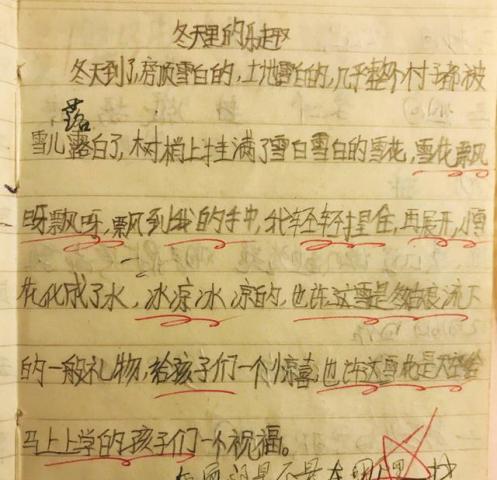 冬天里的乐趣
冬天到了,房顶雪白的,土地雪白的,几乎整个村子都被
落
雪儿露白了,树梢上挂满了雪白雪白的雪花,雪花飘
呀飘呀,飘到我的手中,我轻轻握住,再展开,小雪
花化成了水,冰凉冰凉的,也许这雪是
的一般礼物,给孩子们一个惊喜,也许这雪花是天空给
马上上学的孩子们一个祝福。